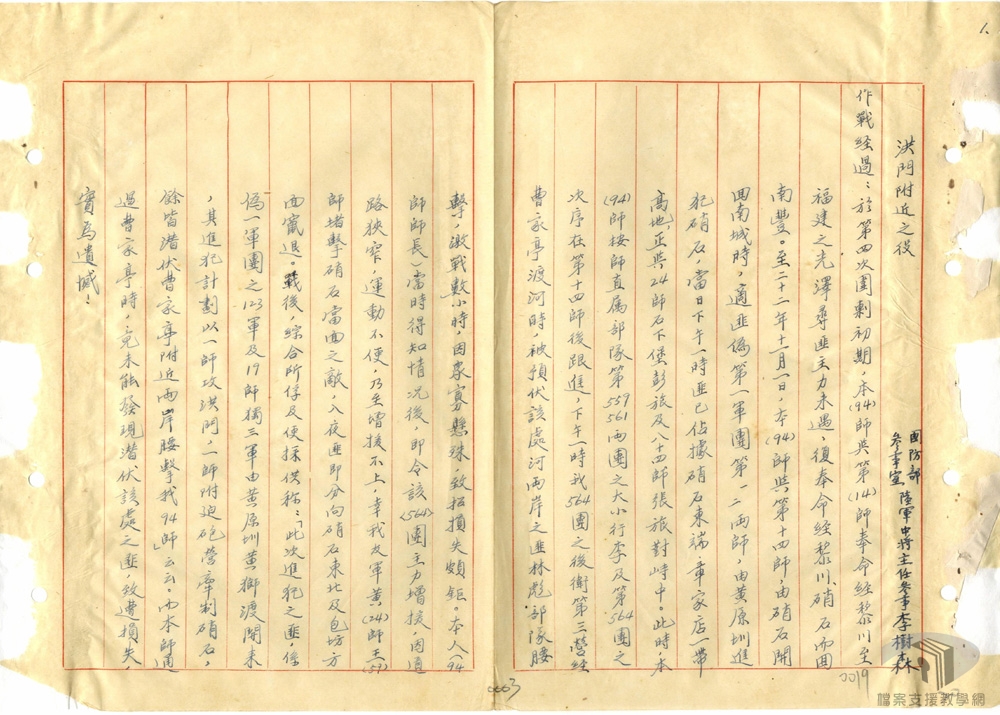 1.
洪門附近之役
國防部
參事室 陸軍中將主任參事李樹森
作戰經過：於第四次圍剿初期，本(94)師與第(14)師奉命經黎川至
福建之光澤尋匪主力未遇，復奉命經黎川、硝石而回
南豐。至二十二年十一月一日，本(94)師與第十四師，由硝石開
回南城時，適匪偽第一軍團第一二兩師，由黃原圳進
犯硝石，當日下午一時匪已佔據硝石東端章家店一帶
高地，正與24師石下堡彭旅及八十四師張旅對峙中。此時，本
(94)師按師直屬部隊第559 561兩團之大小行李及第564團之
次序在第十四師後跟進，下午一時我564團之後衛第三營經
曹家亭渡河時，被預伏該處河兩岸之匪林彪部隊腰
擊，激戰數小時，因眾寡懸殊，致招損失頗鉅。本人(94
師師長)當時得知情況後，即令該(564)團主力增援，因道
路狹窄，運動不便，乃至增援不上，幸我友軍黃(24)師王(59)
師堵擊硝石當面之敵，入夜匪即分向硝石東北及包坊方
面竄退。戰後，綜合所俘及便探供稱：「此次進犯之匪，係
偽一軍團之123軍及19師獨三軍由黃原圳黃獅渡開來
，其進犯計劃以一師攻洪門，一師附迫砲營牽制硝石，
餘皆潛伏曹家亭附近兩岸腰擊我94師」云云。而本師通
過曹家亭時，竟未能發現潛伏該處之匪，致遭損失
實為遺憾！
0003
0019
檔案支援教學網